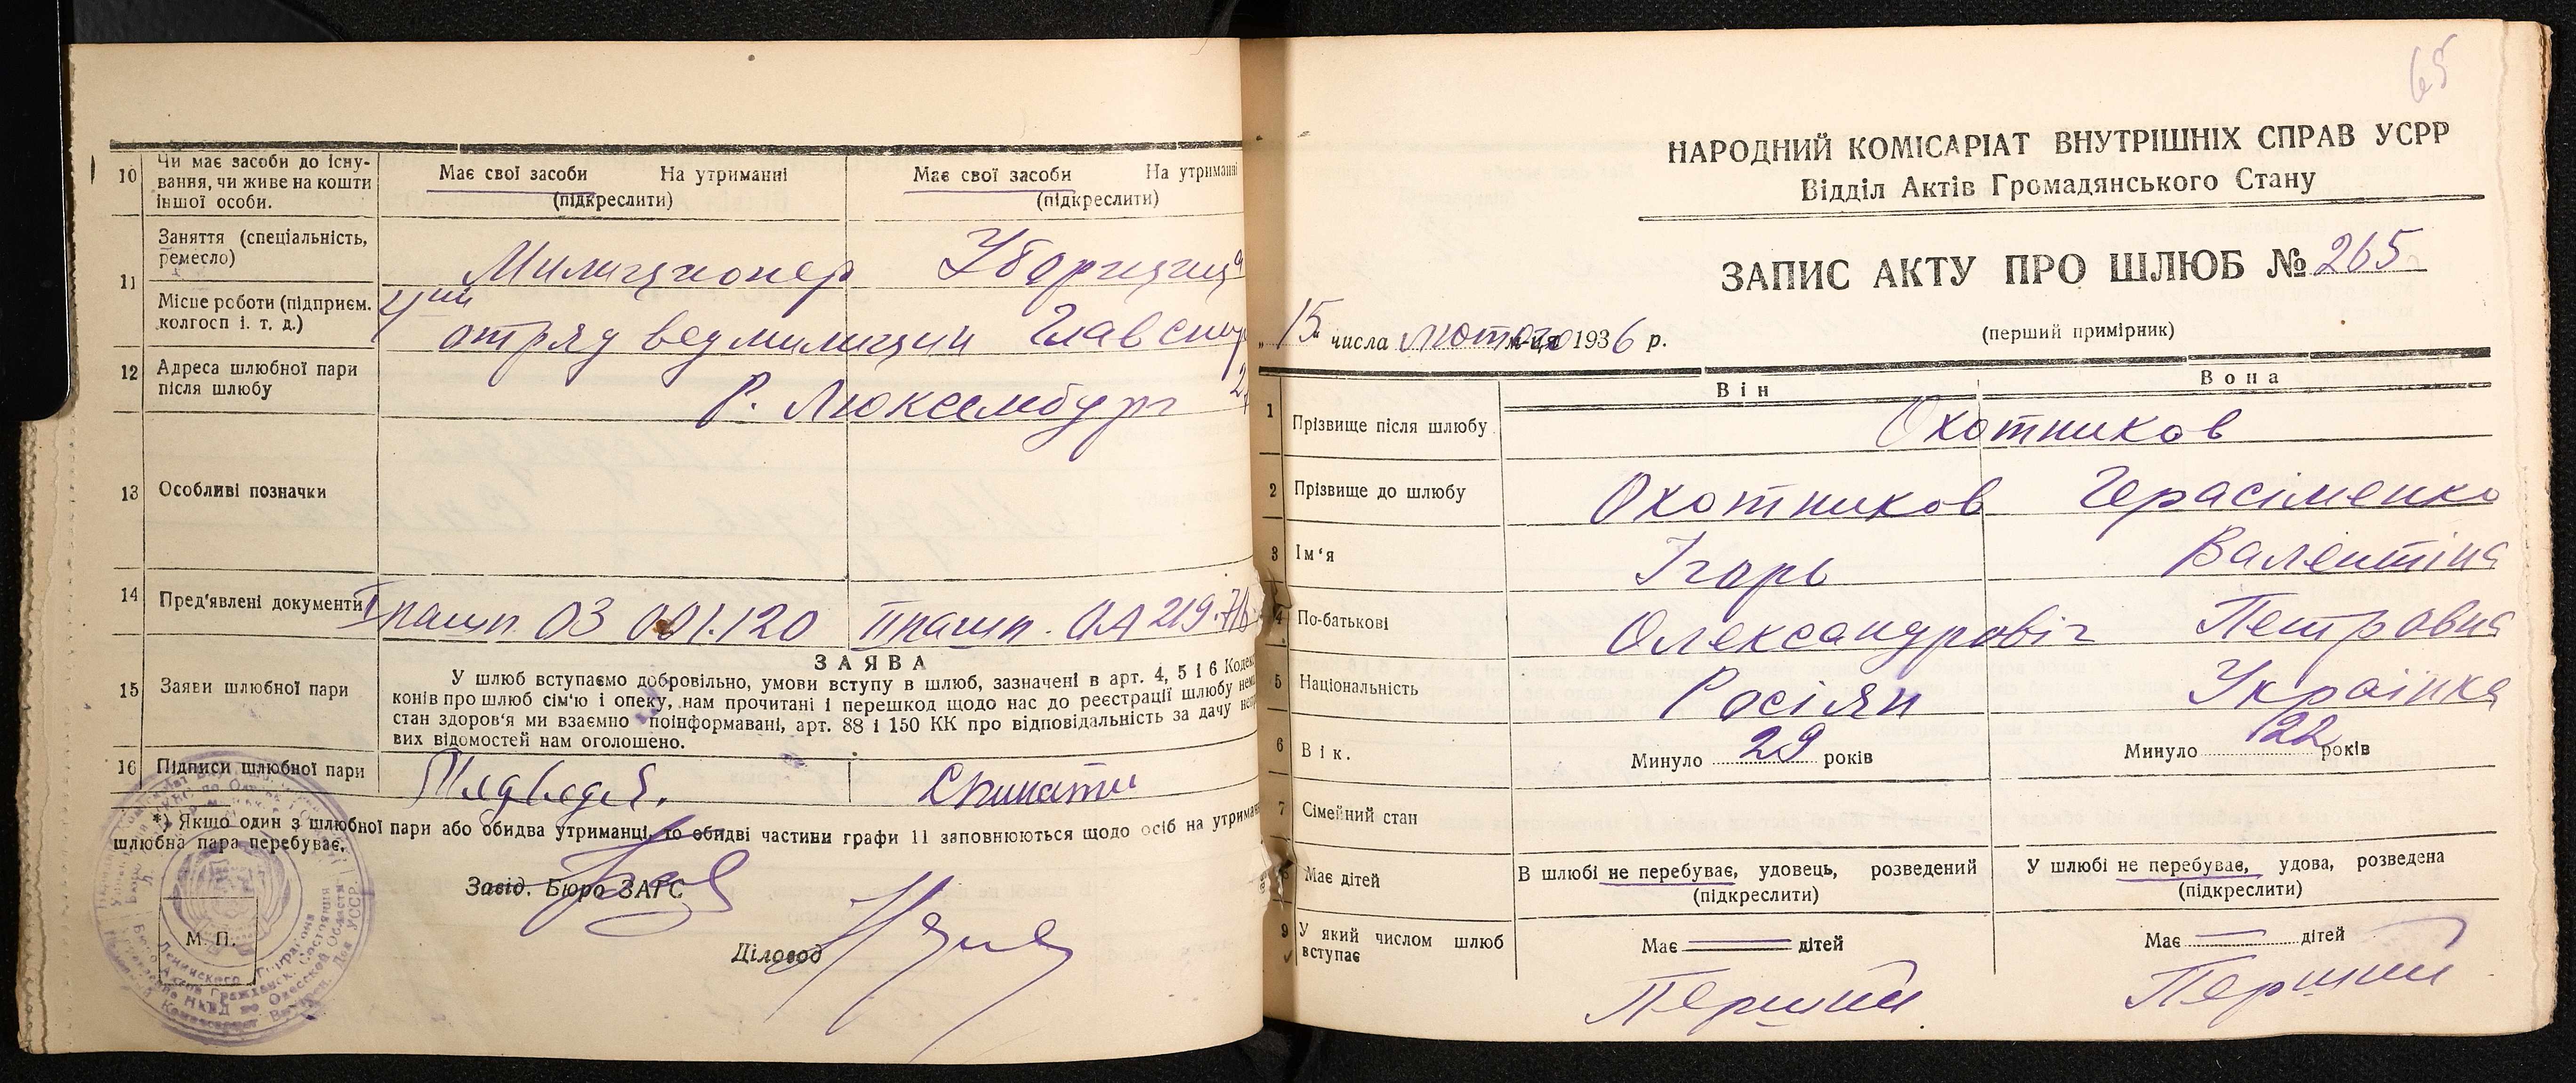 10 Чи має засоби до існу-
вання, чи живе на кошти
іншої особи.
Має свої засоби На утриманні
(підкреслити)
Має свої засоби На утриманні
(підкреслити)
11 Заняття (спеціальність,
ремесло)
Милиционер Уборщица
Місце роботи (підприєм.
колгосп і. т. д.)
4ый отряд ведмилиции Главспир
12 Адреса шлюбної пари
після шлюбу
Р. Люксембург
13 Особливі позначки
14 Пред'явлені документи
I пашп. ОЗ 001.120 II пашп. ОА 219.716
15 Заяви шлюбної пари
ЗАЯВА
У шлюб вступаємо добровільно, умови вступу в шлюб, зазначені в арт. 4, 5 і 6 Кодекс
конів про шлюб сім'ю і опеку, нам прочитані і перешкод щодо нас до реєстрації шлюбу нема
стан здоров'я ми взаємно поінформавані, арт. 88 і 150 КК про відповідальність за дачу неп
вих відомостей нам оголошено.
16 Підписи шлюбної пари
*) Якщо один з шлюбної пари або обидва утриманці, то обидві частини графи 11 заповнюються щодо осіб на утриман
шлюбна пара перебуває.
Завід. Бюро ЗАГС
М. П.
Діловод
65
НАРОДНИЙ КОМІСАРІАТ ВНУТРІШНІХ СПРАВ УСРР
Відділ Актів Громадянського Стану
ЗАПИС АКТУ ПРО ШЛЮБ № 265
"15" числа лютого м-ця 1936 р.
(перший примірник)
Він Вона
1 Прізвище після шлюбу Охотников
2 Прізвище до шлюбу Охотников Герасіменко
3 Ім'я Ігорь Валентіна
4 По-батькові Олександровіч Петровна
5 Національність Росіян Українка
6 Вік. Минуло 29 років Минуло 22 років
7 Сімейний стан
В шлюбі не перебуває, удовець, розведений
(підкреслити)
У шлюбі не перебуває, удова, розведена
(підкреслити)
8 Має дітей
Має — дітей Має — дітей
9 У який числом шлюб
вступає
Перший Перший